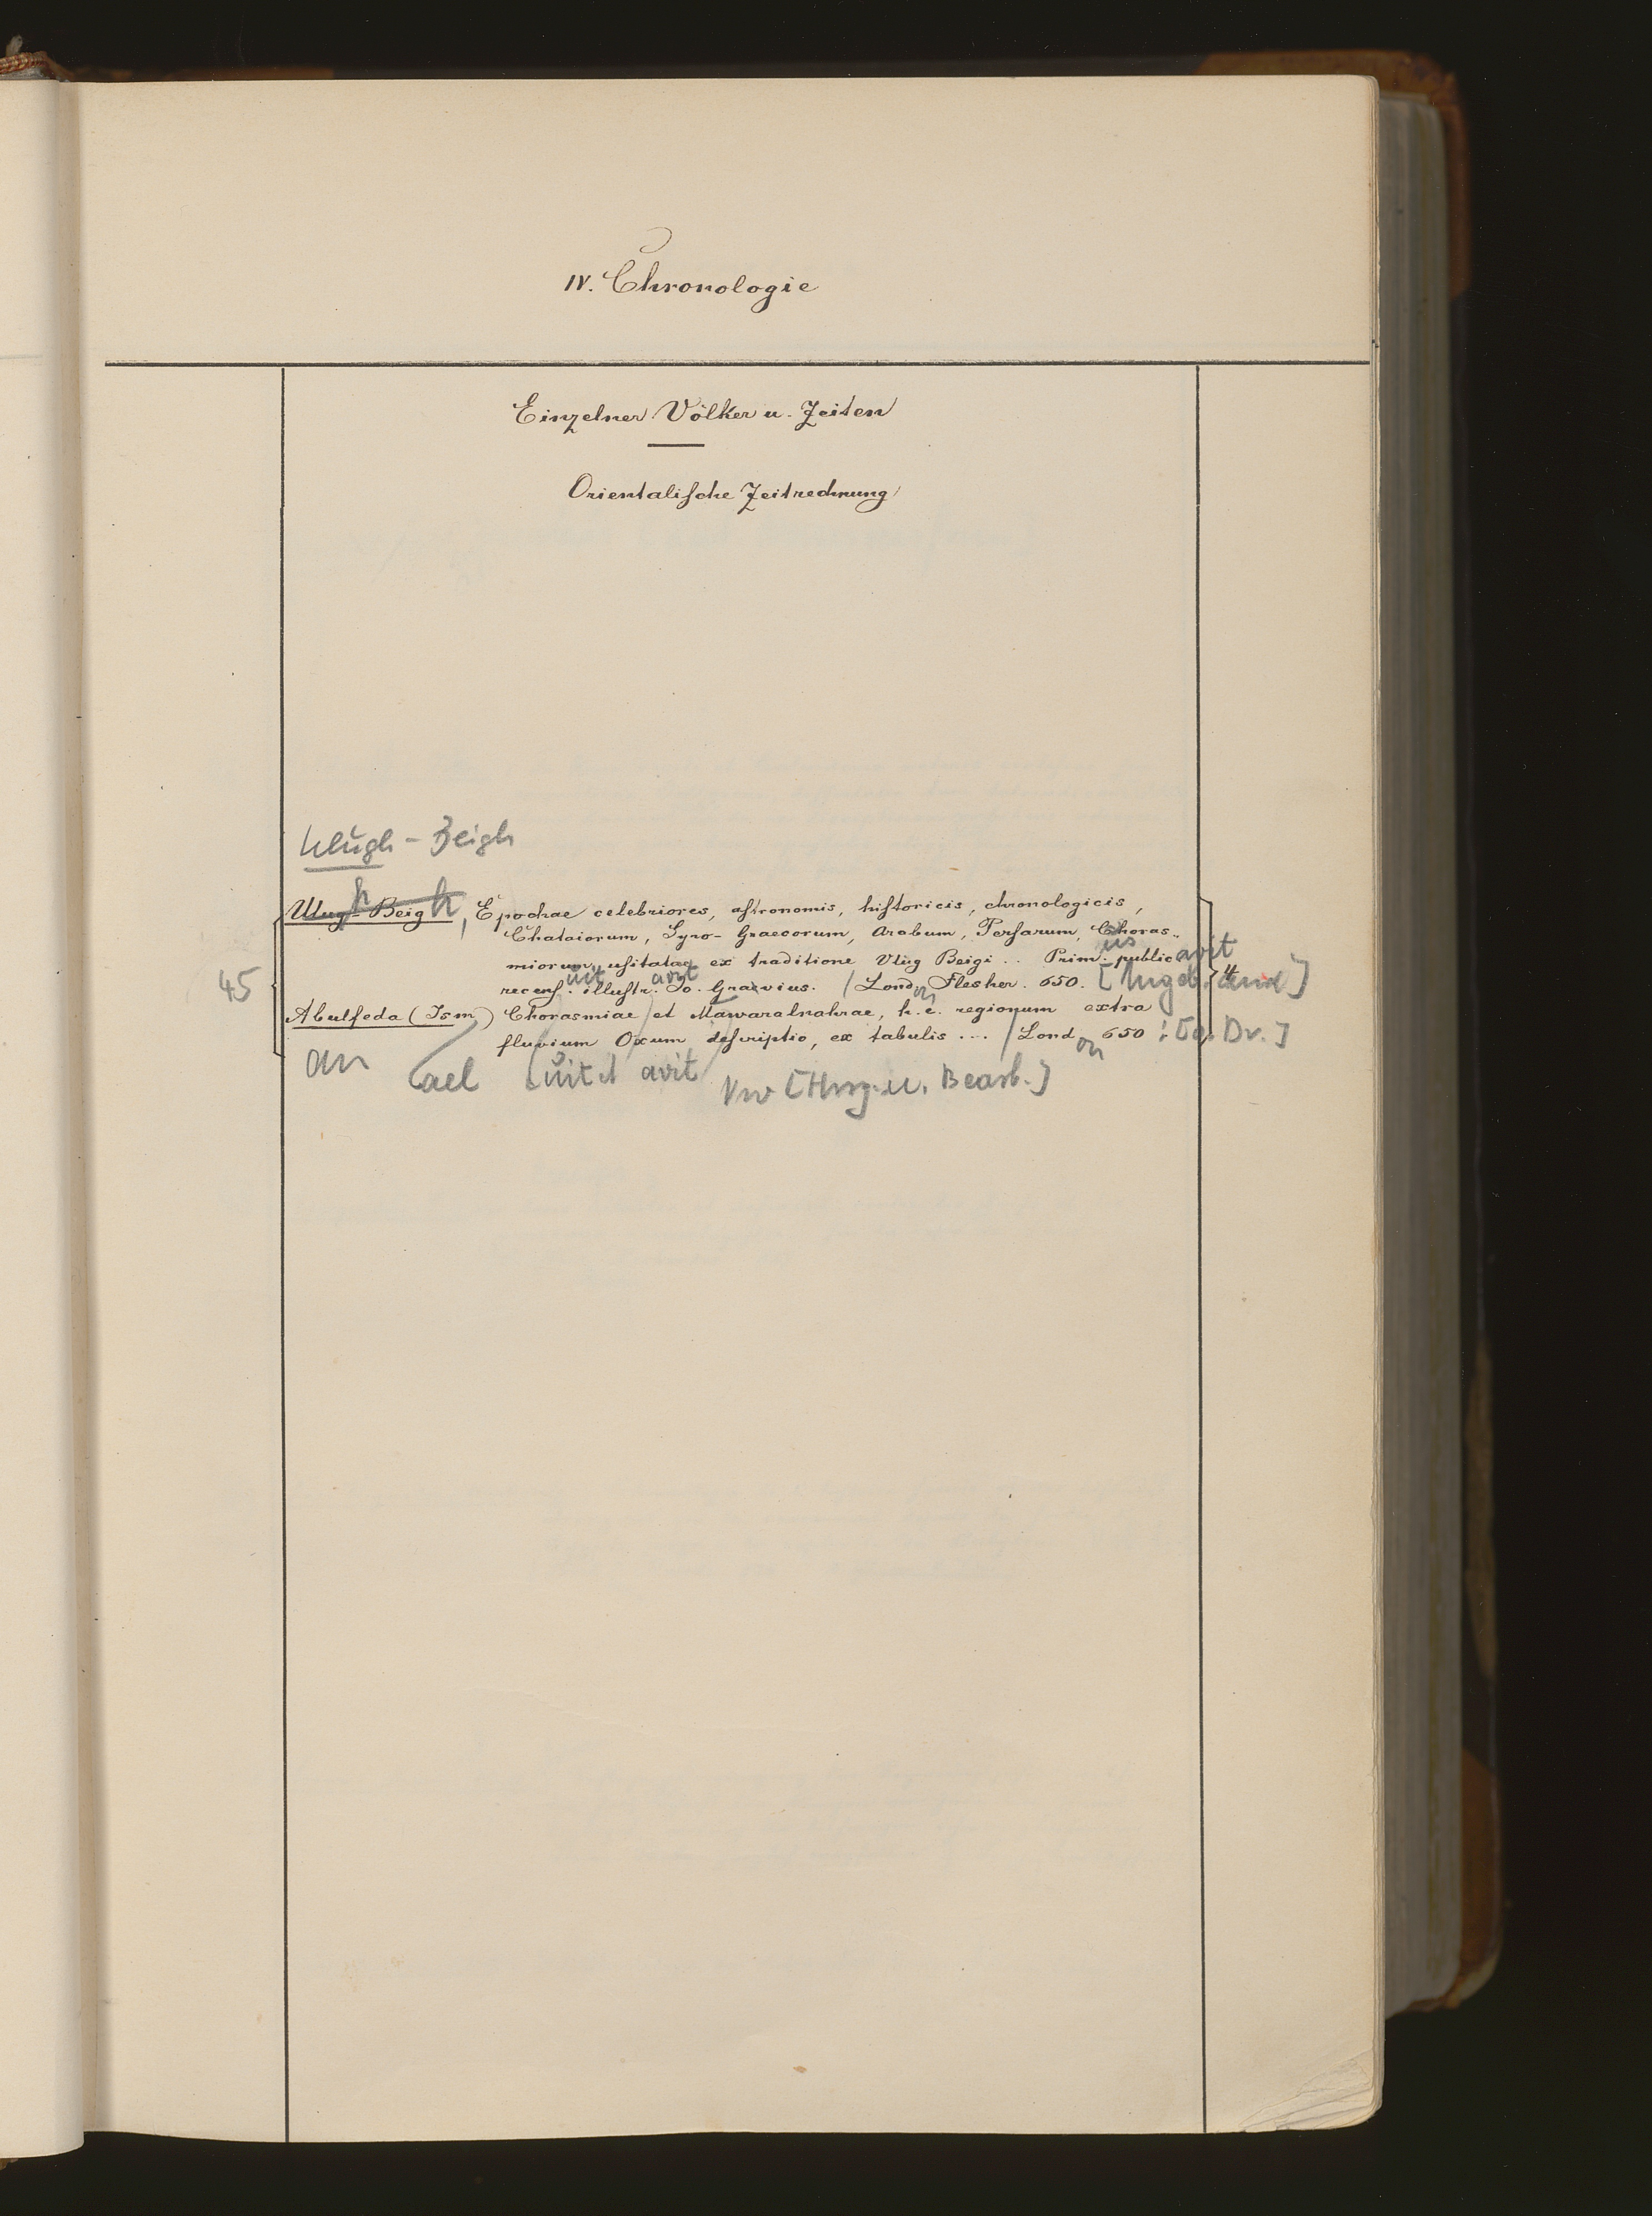 IV. Chronologie
Einzelner Völker u. Zeiten
Orientalische Zeitrechnung
Ulugh - Beigh
Ulug - Beig h, Epochae celebriores, astronomis, historicis, chronologicis,
Chataiorum, Syro- Graecorum, Arabum, Persarum, Choras-
miorum, usitatae ex traditione Ulug Beigi .. Prim. us public avit
45 recens. uit illustr. avit Jo. Gravius. / Lond on Flesher. 650. 4
Abulfeda (Ism) Chorasmiae et Mawaralnahrae, h. e. regionum extra
fluvium Oxum descriptio, ex tabulis ... / Lond on 650 : [o. Dr.]
an ael uit avit [Hrsg. u. Bearb.]